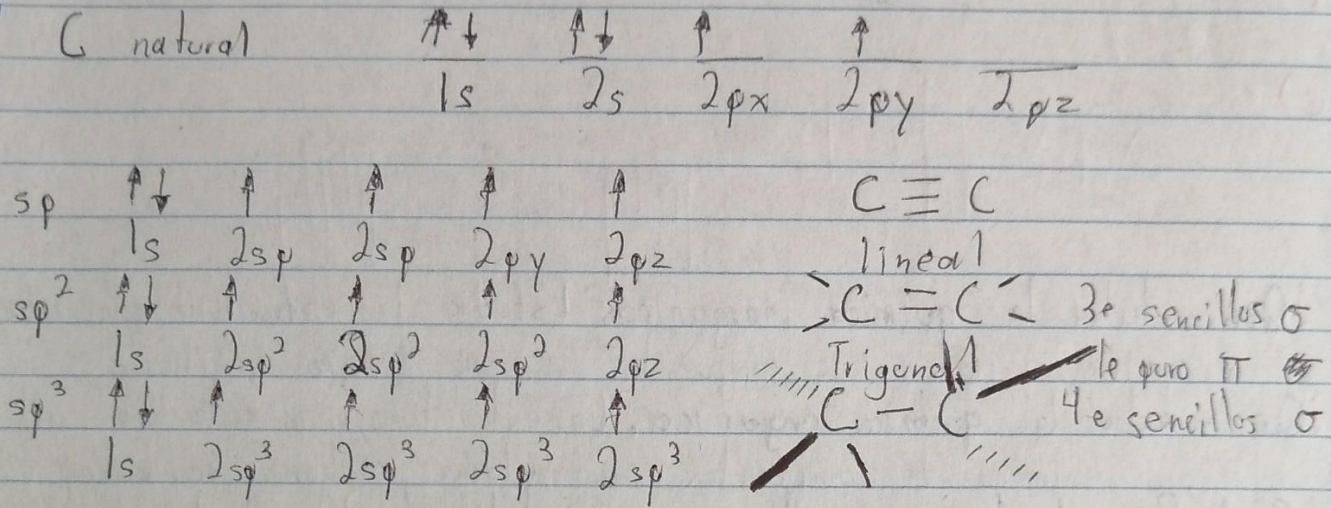 C natural ↑↓ ↑↓ ↑ ↑
1s 2s 2px 2py 2pz
sp ↑↓ ↑ ↑ ↑ ↑ C ≡ C
1s 2sp 2sp 2py 2pz lineal
sp² ↑↓ ↑ ↑ ↑ ↑ C = C 3e sencillos σ
1s 2sp² 2sp² 2sp² 2pz Trigonal 1e puro π
sp³ ↑↓ ↑ ↑ ↑ ↑ C - C 4e sencillos σ
1s 2sp³ 2sp³ 2sp³ 2sp³